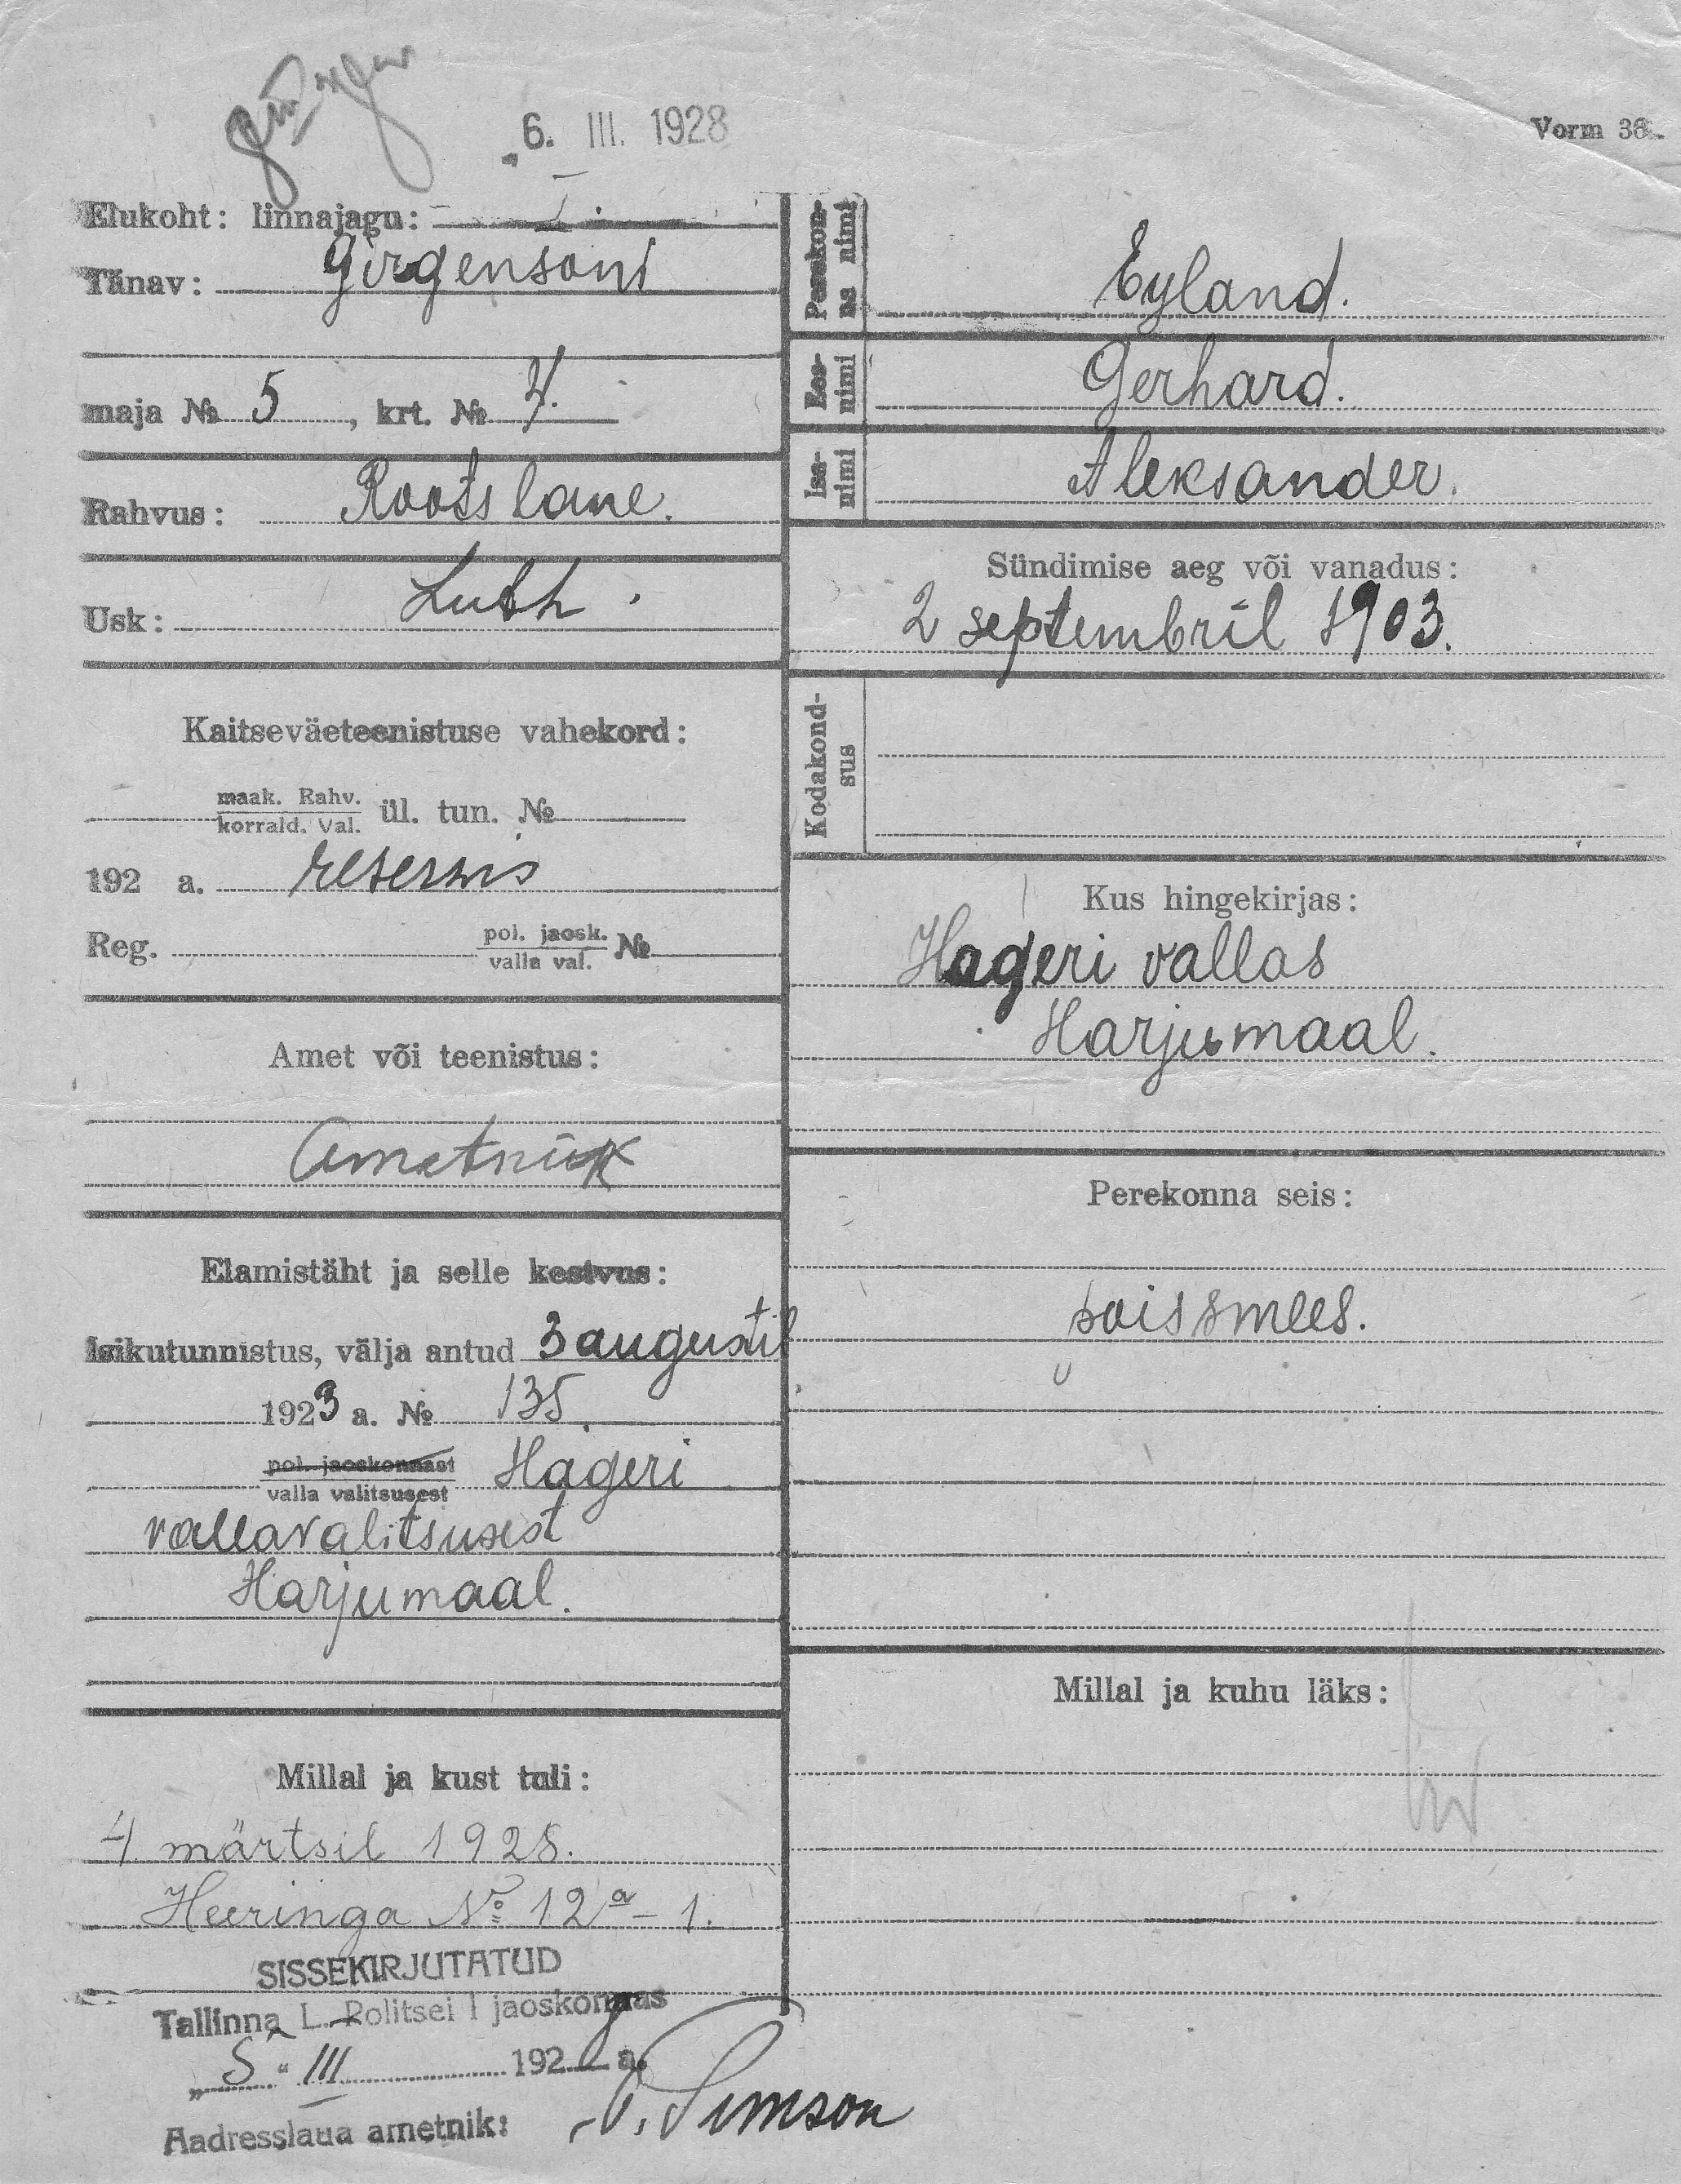 6. III. 1928
Vorm 36.
Elukoht: linnajagu: I.
Tänav: Girgensoni
maja № 5, krt. № 4.
Rahvus: Rootslane.
Usk: Luth.
Kaitseväeteenistuse vahekord:
maak. Rahv.
korrald. Val. ül. tun. №
192 a. reservis
Reg. pol. jaosk.
valla val. №
Amet või teenistus:
Ametnik
Elamistäht ja selle kestvus:
Isikutunnistus, välja antud 3 augustil
1923 a. № 135.
pol. jaoskonnast
valla valitsusest Hageri
vallavalitsusest
Harjumaal.
Millal ja kust tuli:
4 märtsil 1928.
Heeringa № 12a - 1.
SISSEKIRJUTATUD
Tallinna L. Politsei I jaoskonnas
„5" III 1928 a.
Aadresslaua ametnik: Simson
Perekonna nimi Eyland.
Ees-
nimi Gerhard.
Isa-
nimi Aleksander.
Sündimise aeg või vanadus:
2 septembril 1903.
Kodakond-
sus
Kus hingekirjas:
Hageri vallas
Harjumaal.
Perekonna seis:
poissmees.
Millal ja kuhu läks: